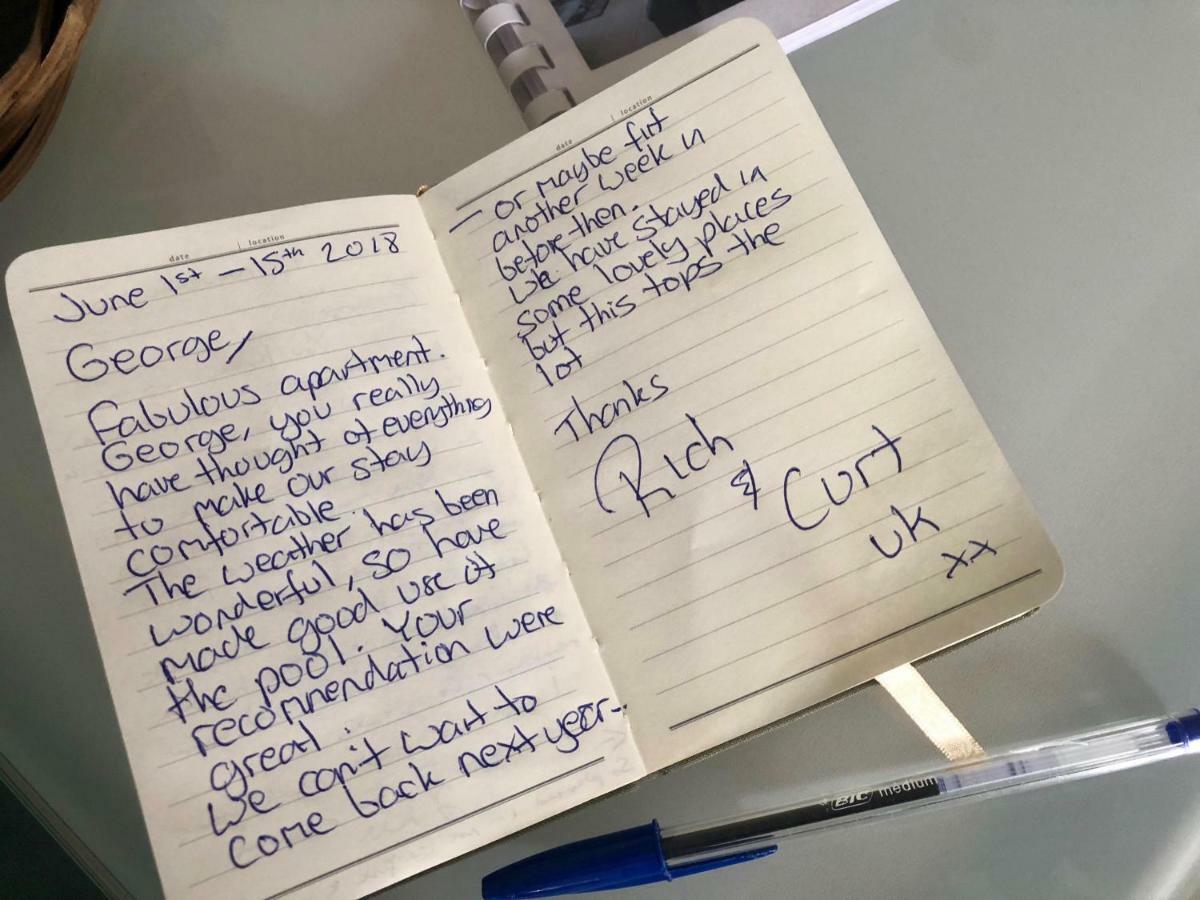 date | location
June 1st - 15th 2018
George,
Fabulous apartment.
George, you really
have thought of everything
to make our stay
comfortable.
The weather has been
wonderful, so have
made good use of
the pool. Your
recommendation were
great.
We can't wait to
come back next year-
date | location
- or maybe fit
another week in
before then.
We have stayed in
some lovely places
but this tops the
lot
Thanks
Rich
& Curt
UK
xx
BIC medium